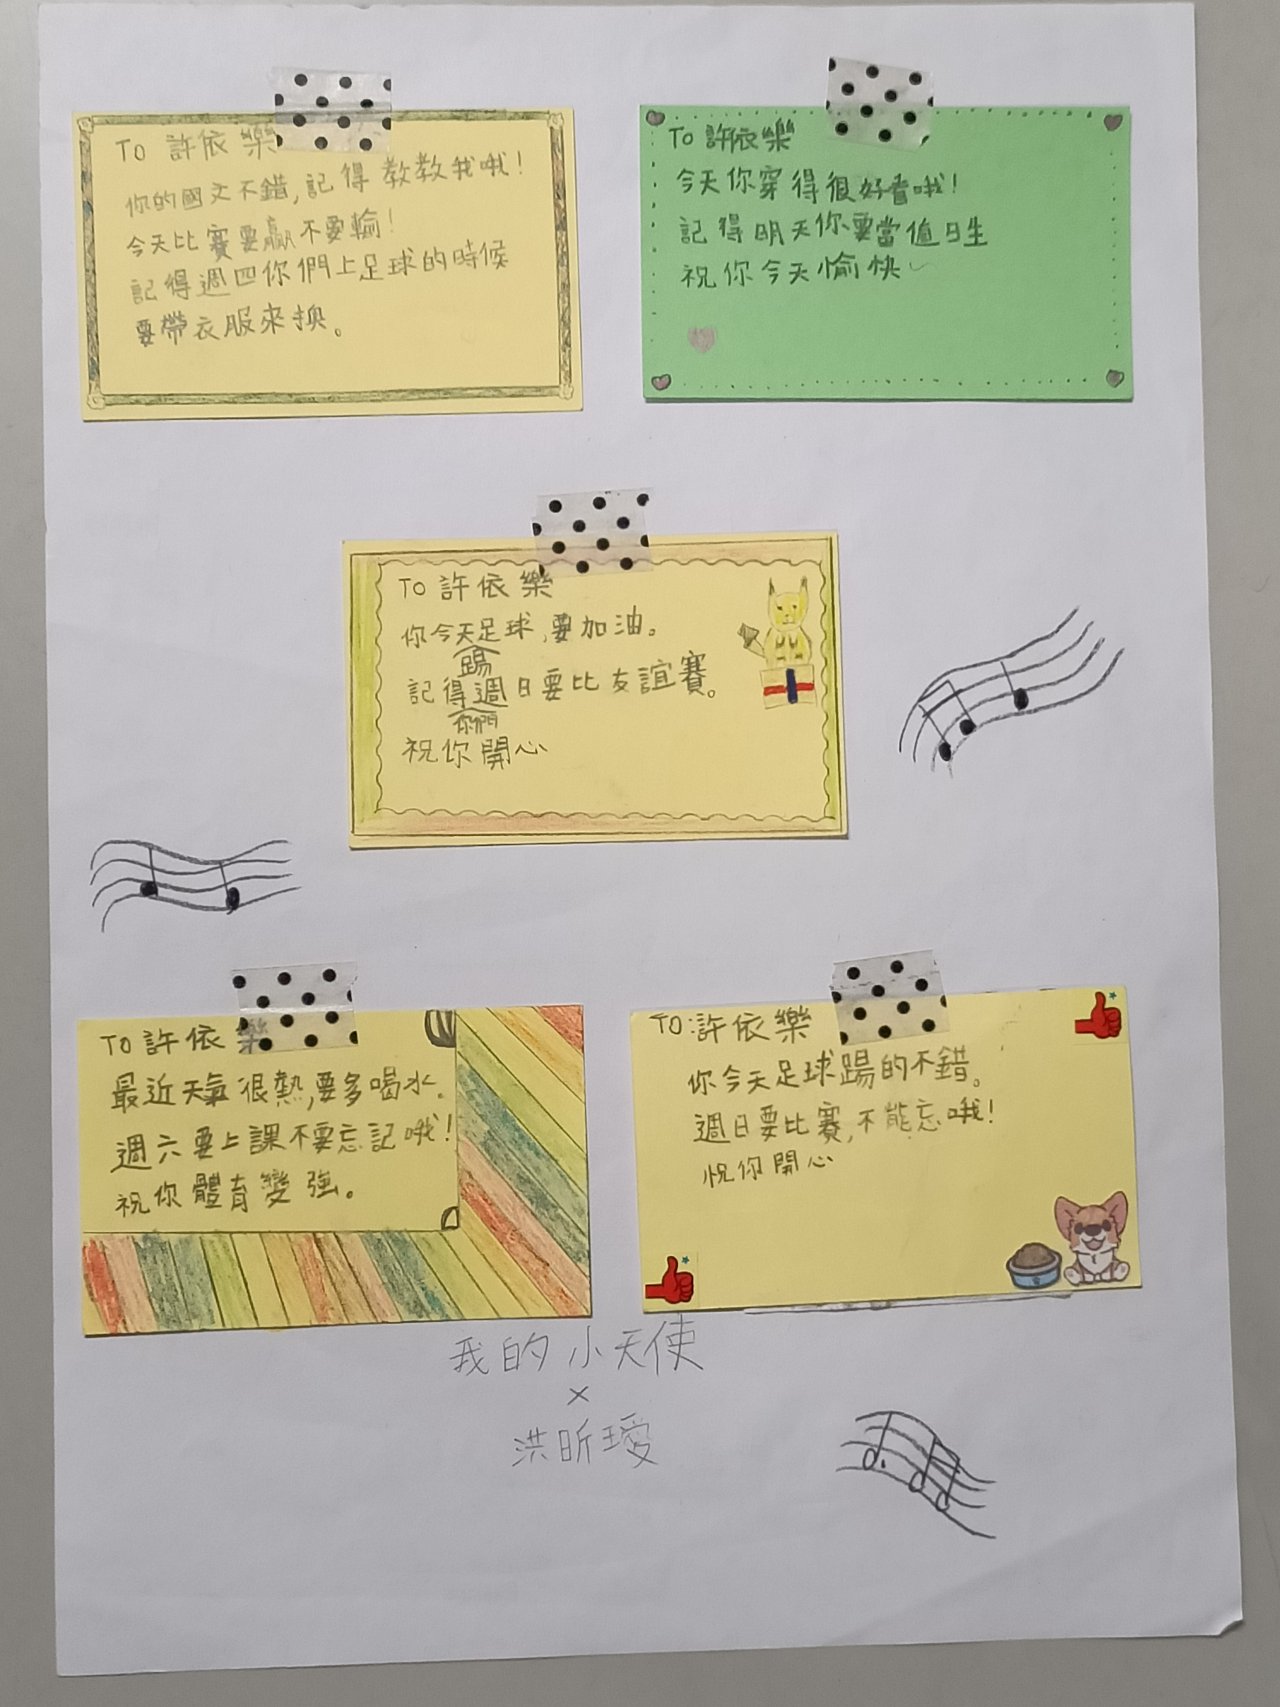 TO 許依樂
你的國文不錯,記得教教我哦!
今天比賽要贏不要輸!
記得週四你們上足球的時候
要帶衣服來換。
TO 許依樂
今天你穿得很好看哦!
記得明天你要當值日生
祝你今天愉快
TO 許依樂
你今天足球,要加油。
踢
記得週日要比友誼賽。
你們
祝你開心
TO 許依樂
最近天氣很熱,要多喝水.
週六要上課不要忘記哦!
祝你體育變強。
TO:許依樂
你今天足球踢的不錯。
週日要比賽,不能忘哦!
祝你開心
我的小天使
×
洪昕璦